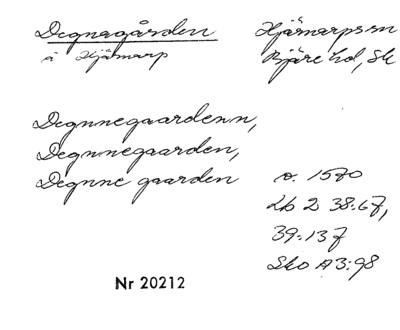 Degnagården
å Hjärnarp
Hjärnarps sn
Bjäre hd, Sk
Degnnegaardenn,
Degnnegaarden,
Degnne gaarden
o. 1570
Lb 2 38:67,
39:137
Sko A3:98
Nr 20212